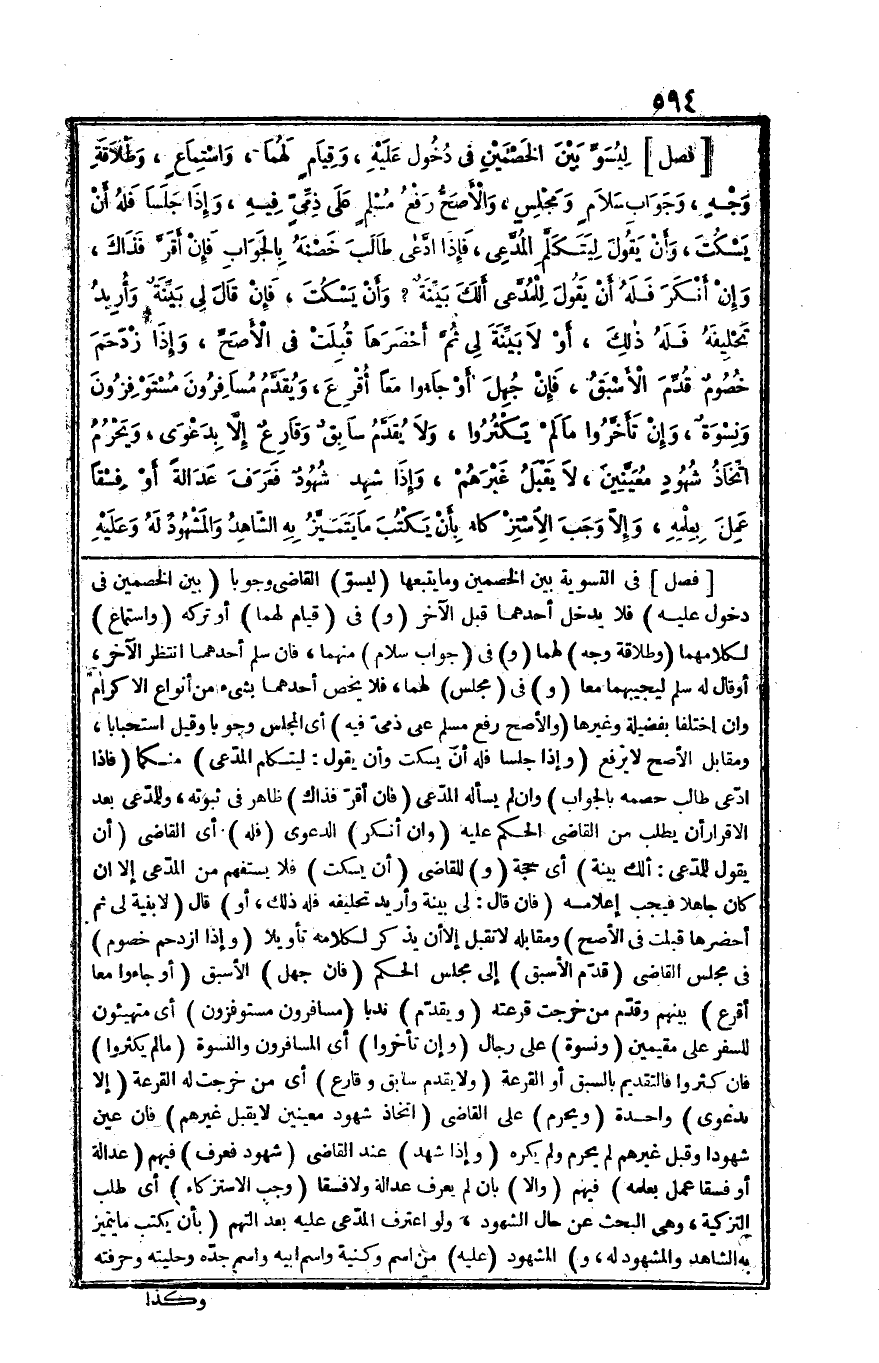 ٥٩٤
[ فصل ] لِيُسَوِّ بَيْنَ الْخَصْمَيْنِ فِى دُخُولٍ عَلَيْهِ ، وَقِيَامٍ لَهُمَا ، وَاسْتِمَاعٍ ، وَطَلَاقَةِ
وَجْهٍ ، وَجَوَابِ سَلَامٍ وَمَجْلِسٍ ، وَالْأَصَحُّ رَفْعُ مُسْلِمٍ عَلَى ذِمِّىٍّ فِيهِ ، وَإِذَا جَلَسَا فَلَهُ أَنْ
يَسْكُتَ ، وَأَنْ يَقُولَ لِيَتَكَلَّمِ الْمُدَّعِى ، فَإِذَا ادَّعَى طَالَبَ خَصْمَهُ بِالْجَوَابِ فَإِنْ أَقَرَّ فَذَاكَ ،
وَإِنْ أَنْكَرَ فَلَهُ أَنْ يَقُولَ لِلْمُدَّعِى أَلَكَ بَيِّنَةٌ ؟ وَأَنْ يَسْكُتَ ، فَإِنْ قَالَ لِى بَيِّنَةٌ وَأُرِيدُ
تَحْلِيفَهُ فَلَهُ ذٰلِكَ ، أَوْ لَا بَيِّنَةَ لِى ثُمَّ أَحْضَرَهَا قُبِلَتْ فِى الْأَصَحِّ ، وَإِذَا زْدَحَمَ
خُصُومٌ قُدِّمَ الْأَسْبَقُ ، فَإِنْ جُهِلَ أَوْ جَاءُوا مَعًا أُقْرِعَ ، وَيُقَدَّمُ مُسَافِرُونَ مُسْتَوْفِزُونَ
وَنِسْوَةٌ ، وَإِنْ تَأَخَّرُوا مَالَمْ يَكْثُرُوا ، وَلَا يُقَدَّمُ سَابِقٌ وَقَارِعٌ إِلَّا بِدَعْوَى ، وَيَحْرُمُ
اتِّخَاذُ شُهُودٍ مُعَيَّنِينَ ، لَا يَقْبَلُ غَيْرَهُمْ ، وَإِذَا شَهِد شُهُودٌ فَعَرَفَ عَدَالَةً أَوْ فِسْقًا
عَمِلَ بِعِلْمِهِ ، وَإِلَّا وَجَبَ الِاسْتِزْكَاءُ بِأَنْ يَكْتُبَ مَايَتَمَيَّزُ بِهِ الشَّاهِدُ وَالْمَشْهُودُ لَهُ وَعَلَيْهِ
[ فصل ] فى التسوية بين الخصمين ومايتبعها ( ليسوّ ) القاضى وجوبا ( بين الخصمين فى
دخول عليه ) فلا يدخل أحدهما قبل الآخر ( و ) فى ( قيام لهما ) أو تركه ( واستماع )
لكلامهما ( وطلاقة وجه ) لهما ( و ) فى ( جواب سلام ) منهما ، فان سلم أحدهما انتظر الآخر ،
أوقال له سلم ليجيبهما معا ( و ) فى ( مجلس ) لهما ، فلا يخص أحدهما بشىء من أنواع الاكرام
وان اختلفا بفضيلة وغيرها ( والأصح رفع مسلم على ذمىّ فيه ) أى المجلس وجوبا وقيل استحبابا ،
ومقابل الأصح لايرفع ( وإذا جلسا فله أن يسكت وأن يقول : ليتكلم المدّعى ) منكما ( فاذا
ادّعى طالب خصمه بالجواب ) وان لم يسأله المدّعى ( فان أقرّ فذاك ) ظاهر فى ثبوته ، وللمدّعى بعد
الاقرار أن يطلب من القاضى الحكم عليه ( وان أنكر ) الدعوى ( فله ) أى القاضى ( أن
يقول للمدّعى : ألك بينة ) أى حجة ( و ) للقاضى ( أن يسكت ) فلا يستفهم من المدّعى إلا ان
كان جاهلا فيجب إعلامه ( فان قال : لى بينة وأريد تحليفه فله ذلك ، أو ) قال ( لابينة لى ثم
أحضرها قبلت فى الأصح ) ومقابله لاتقبل إلا أن يذكر لكلامه تأويلا ( وإذا ازدحم خصوم )
فى مجلس القاضى ( قدّم الأسبق ) إلى مجلس الحكم ( فان جهل ) الأسبق ( أو جاءوا معا
أقرع ) بينهم وقدّم من خرجت قرعته ( ويقدّم ) ندبا ( مسافرون مستوفزون ) أى متهيئون
للسفر على مقيمين ( ونسوة ) على رجال ( وإن تأخروا ) أى المسافرون والنسوة ( مالم يكثروا )
فان كثروا فالتقديم بالسبق أو القرعة ( ولايقدم سابق و قارع ) أى من خرجت له القرعة ( إلا
بدعوى ) واحدة ( ويحرم ) على القاضى ( اتخاذ شهود معينين لايقبل غيرهم ) فان عين
شهودا وقبل غيرهم لم يحرم ولم يكره ( وإذا شهد ) عند القاضى ( شهود فعرف ) فيهم ( عدالة
أو فسقا عمل بعلمه ) فيهم ( والا ) بان لم يعرف عدالة ولافسقا ( وجب الاستزكاء ) أى طلب
التزكية ، وهى البحث عن حال الشهود ، ولو اعترف المدّعى عليه بعد التهم ( بأن يكتب مايتميز
به الشاهد والمشهود له ، و ) المشهود ( عليه ) من اسم وكنية واسم ابيه واسم جدّه وحليته وحرفته
وكذا